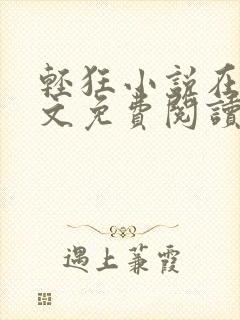 輕狂小說在
文免費閱讀
遇上蒹霞